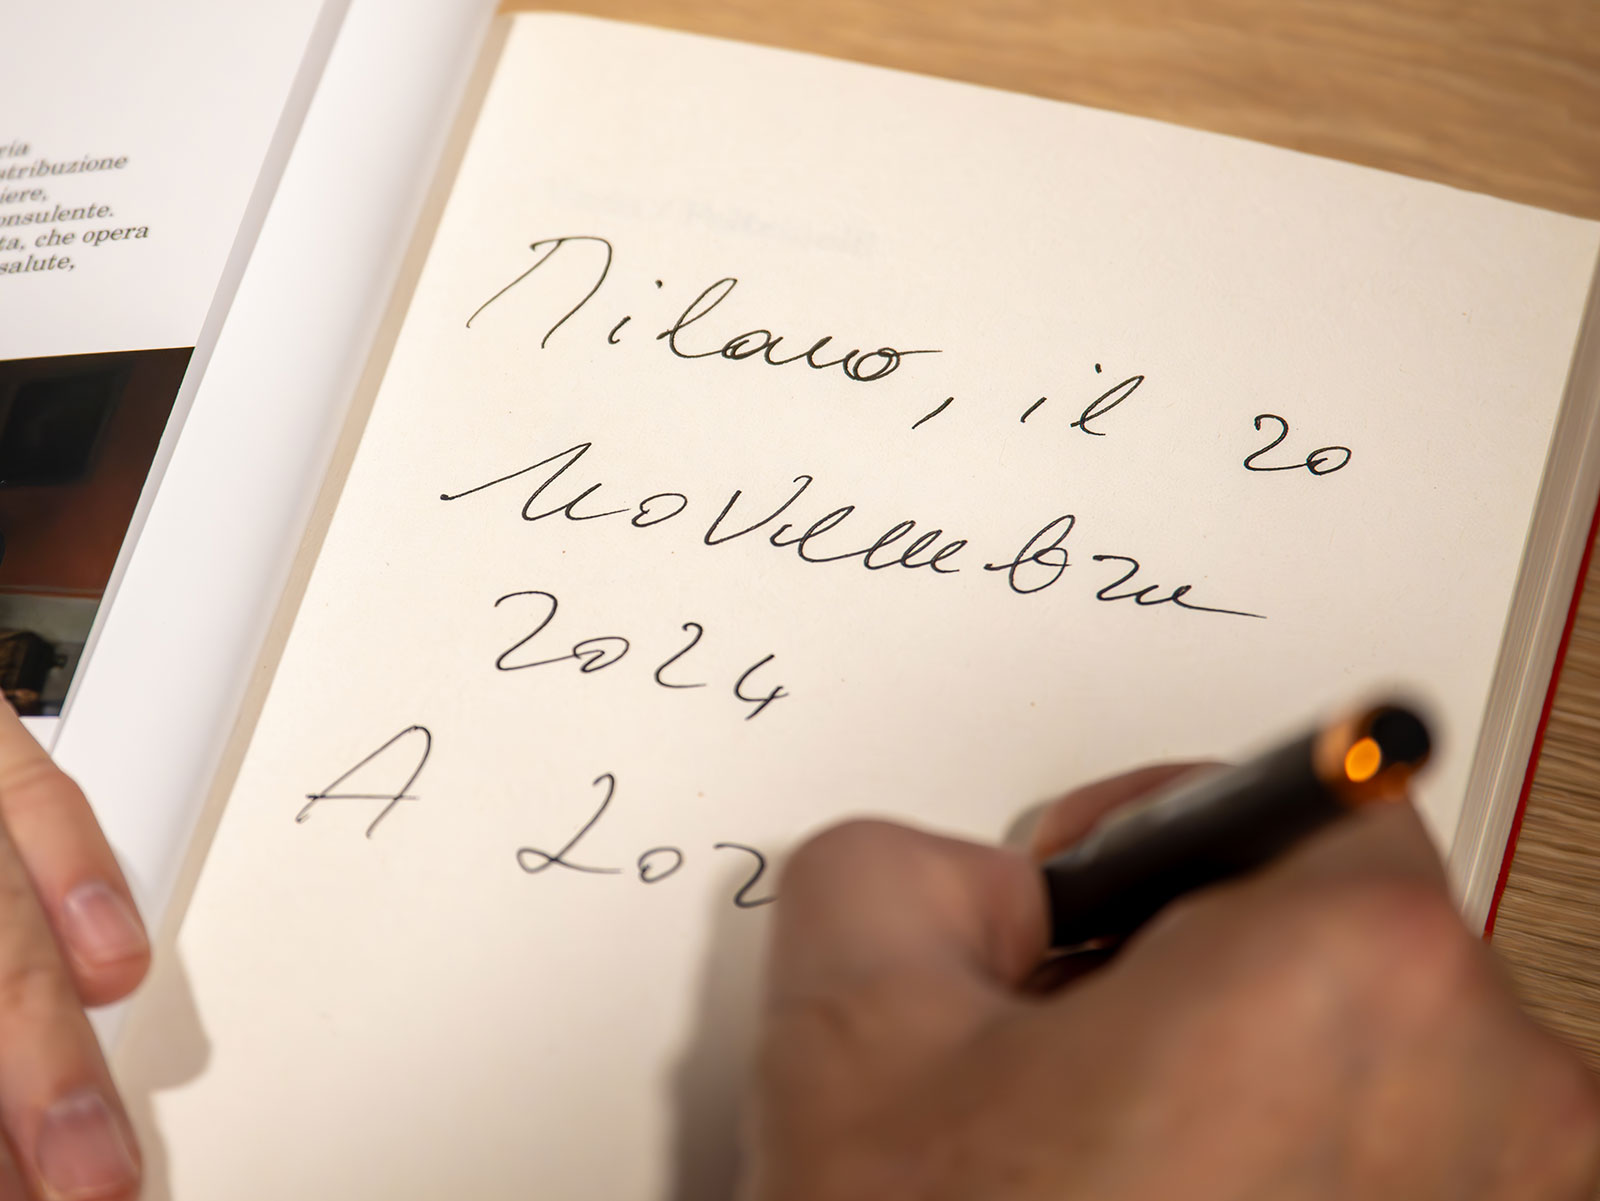 ria
stribuzione
iere,
onsulente.
ta, che opera
salute,
Milano, il 20
Novembre
2024
A